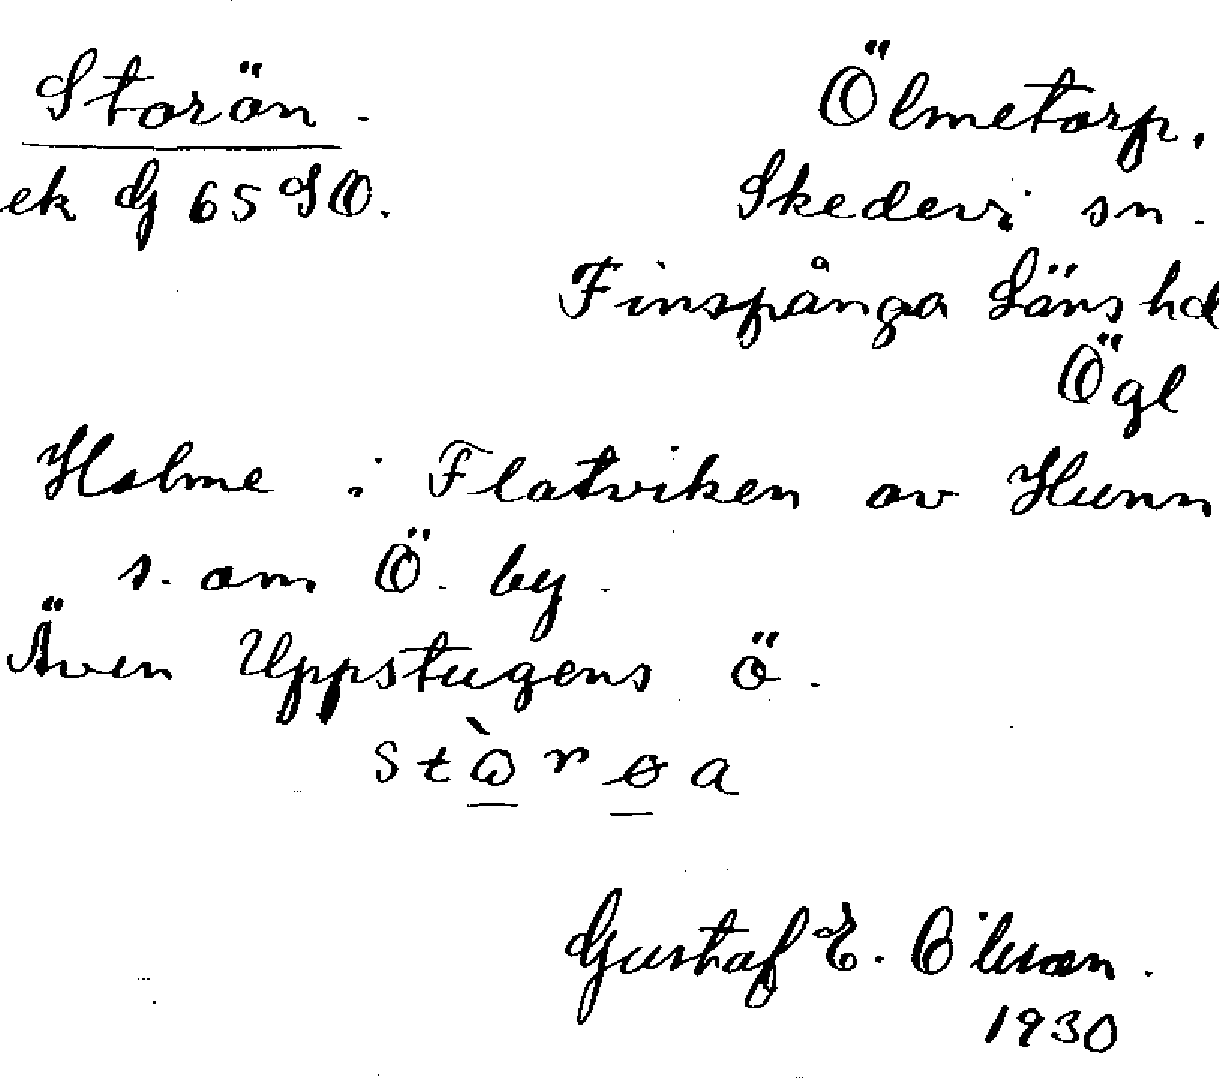 Storön.
Ölmetorp.
ek G 65 SO.
Skedevi sn.
Finspånga Läns hd
Ögl
Holme i Flatviken av Hunn
s. om Ö. by.
Även Uppstugens ö.
Gustaf E. Olsson.
1930